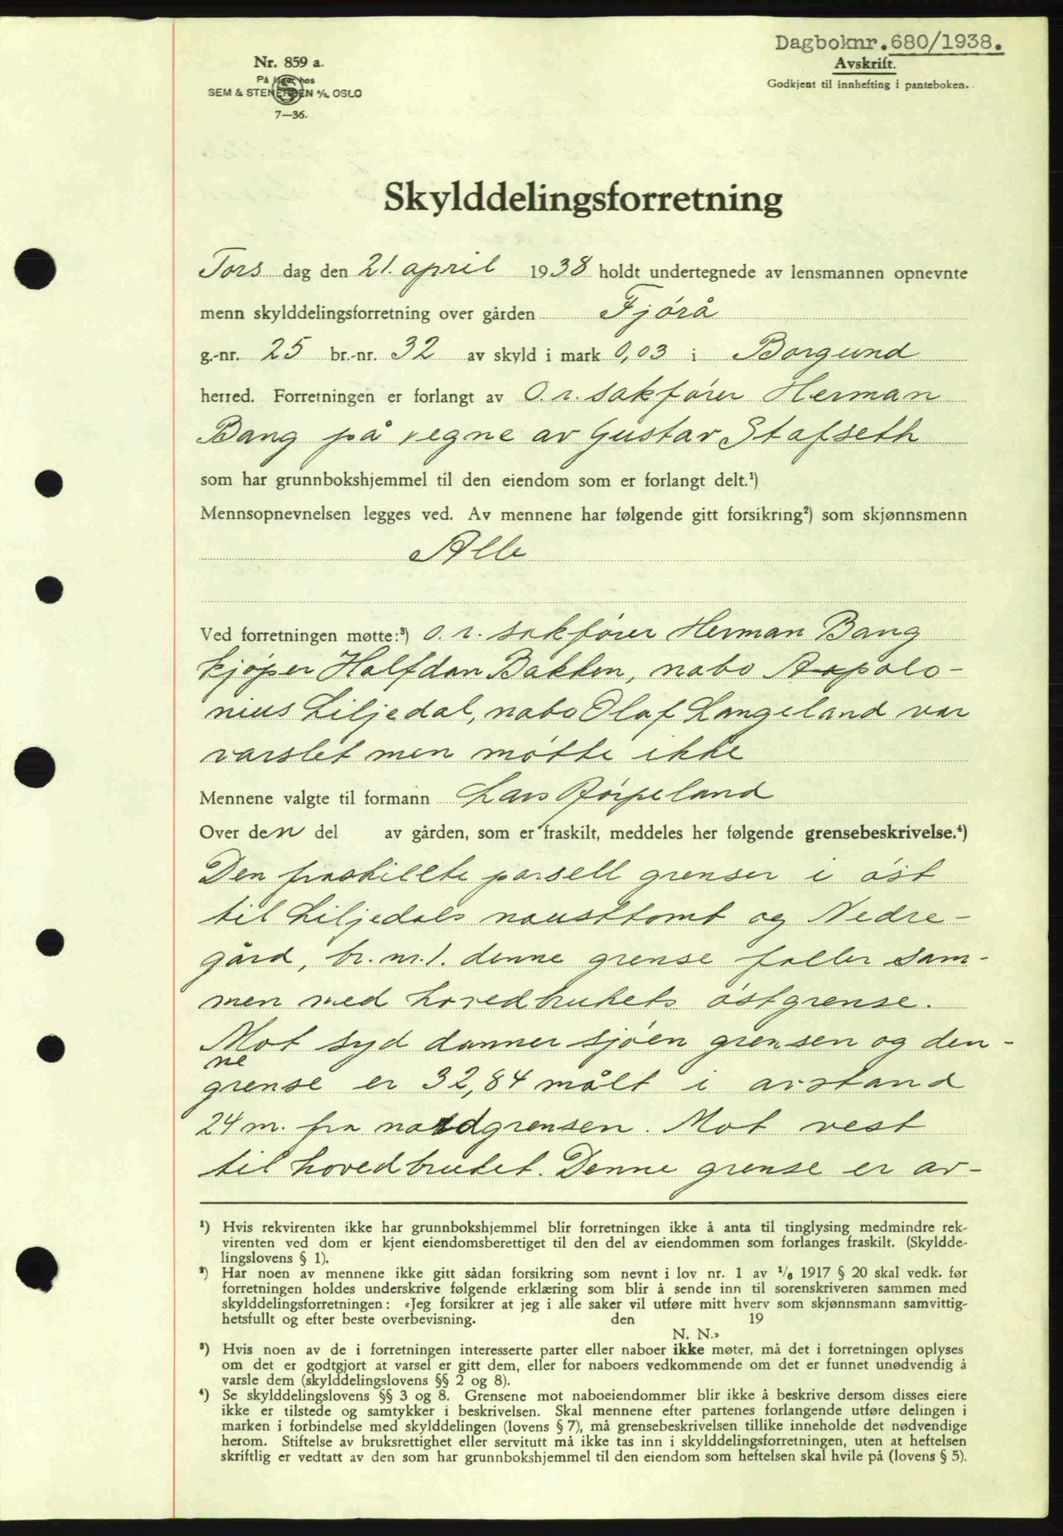 Dagboknr. 680/1938.
Avskrift.
Godkjent til innhefting i panteboken.
Nr. 859 a.
På lager hos
SEM & STENERSEN A/S, OSLO
7—36.
Skylddelingsforretning
Tors dag den 21. april 1938 holdt undertegnede av lensmannen opnevnte
menn skylddelingsforretning over gården Fjørå
g.-nr. 25 br.-nr. 32 av skyld i mark 0,03 i Borgund
herred. Forretningen er forlangt av O.r. sakfører Herman
Bang på vegne av Gustav Stafseth
som har grunnbokshjemmel til den eiendom som er forlangt delt.¹)
Mennsopnevnelsen legges ved. Av mennene har følgende gitt forsikring²) som skjønnsmenn
Alle
Ved forretningen møtte:³) O.r. sakfører Herman Bang
kjøper Halfdan Bakken, nabo Appolo-
nius Liljedal, nabo Olaf Langeland var
varslet men møtte ikke
Mennene valgte til formann Lars Rörpeland
Over den del av gården, som er fraskilt, meddeles her følgende grensebeskrivelse.⁴)
Den fraskillte parsell grenser i øst
til Liljedals nausttomt og Nedre-
gård, br. nr. 1. denne grense faller sam-
men med hovedbrukets østgrense.
Mot syd danner sjøen grensen og den-
ne
grense er 32,84 målt i avstand
24 m. fra nordgrensen. Mot vest
til hovedbruket. Denne grense er av-
¹) Hvis rekvirenten ikke har grunnbokshjemmel blir forretningen ikke å anta til tinglysing medmindre rek-
virenten ved dom er kjent eiendomsberettiget til den del av eiendommen som forlanges fraskilt. (Skyldde-
lingslovens § 1).
²) Har noen av mennene ikke gitt sådan forsikring som nevnt i lov nr. 1 av 1/6 1917 § 20 skal vedk. før
forretningen holdes underskrive følgende erklæring som blir å sende inn til sorenskriveren sammen med
skylddelingsforretningen: «Jeg forsikrer at jeg i alle saker vil utføre mitt hverv som skjønnsmann samvittig-
hetsfullt og efter beste overbevisning. den 19
N. N.»
³) Hvis noen av de i forretningen interesserte parter eller naboer ikke møter, må det i forretningen oplyses
om det er godtgjort at varsel er gitt dem, eller for naboers vedkommende om det er funnet unødvendig å
varsle dem (skylddelingslovens §§ 2 og 8).
⁴) Se skylddelingslovens §§ 3 og 8. Grensene mot naboeiendommer blir ikke å beskrive dersom disses eiere
ikke er tilstede og samtykker i beskrivelsen. Skal mennene efter partenes forlangende utføre delingen i
marken i forbindelse med skylddelingen (lovens § 7), må grensebeskrivelsen tillike inneholde det nødvendige
herom. Stiftelse av bruksrettighet eller servitutt må ikke tas inn i skylddelingsforretningen, uten at heftelsen
skriftlig er vedtatt av den som har grunnbokshjemmel til den eiendom som heftelsen skal hvile på (lovens § 5).